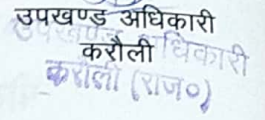 उपखण्ड अधिकारी
करौली
उपखण्ड अधिकारी
करौली (राज०)